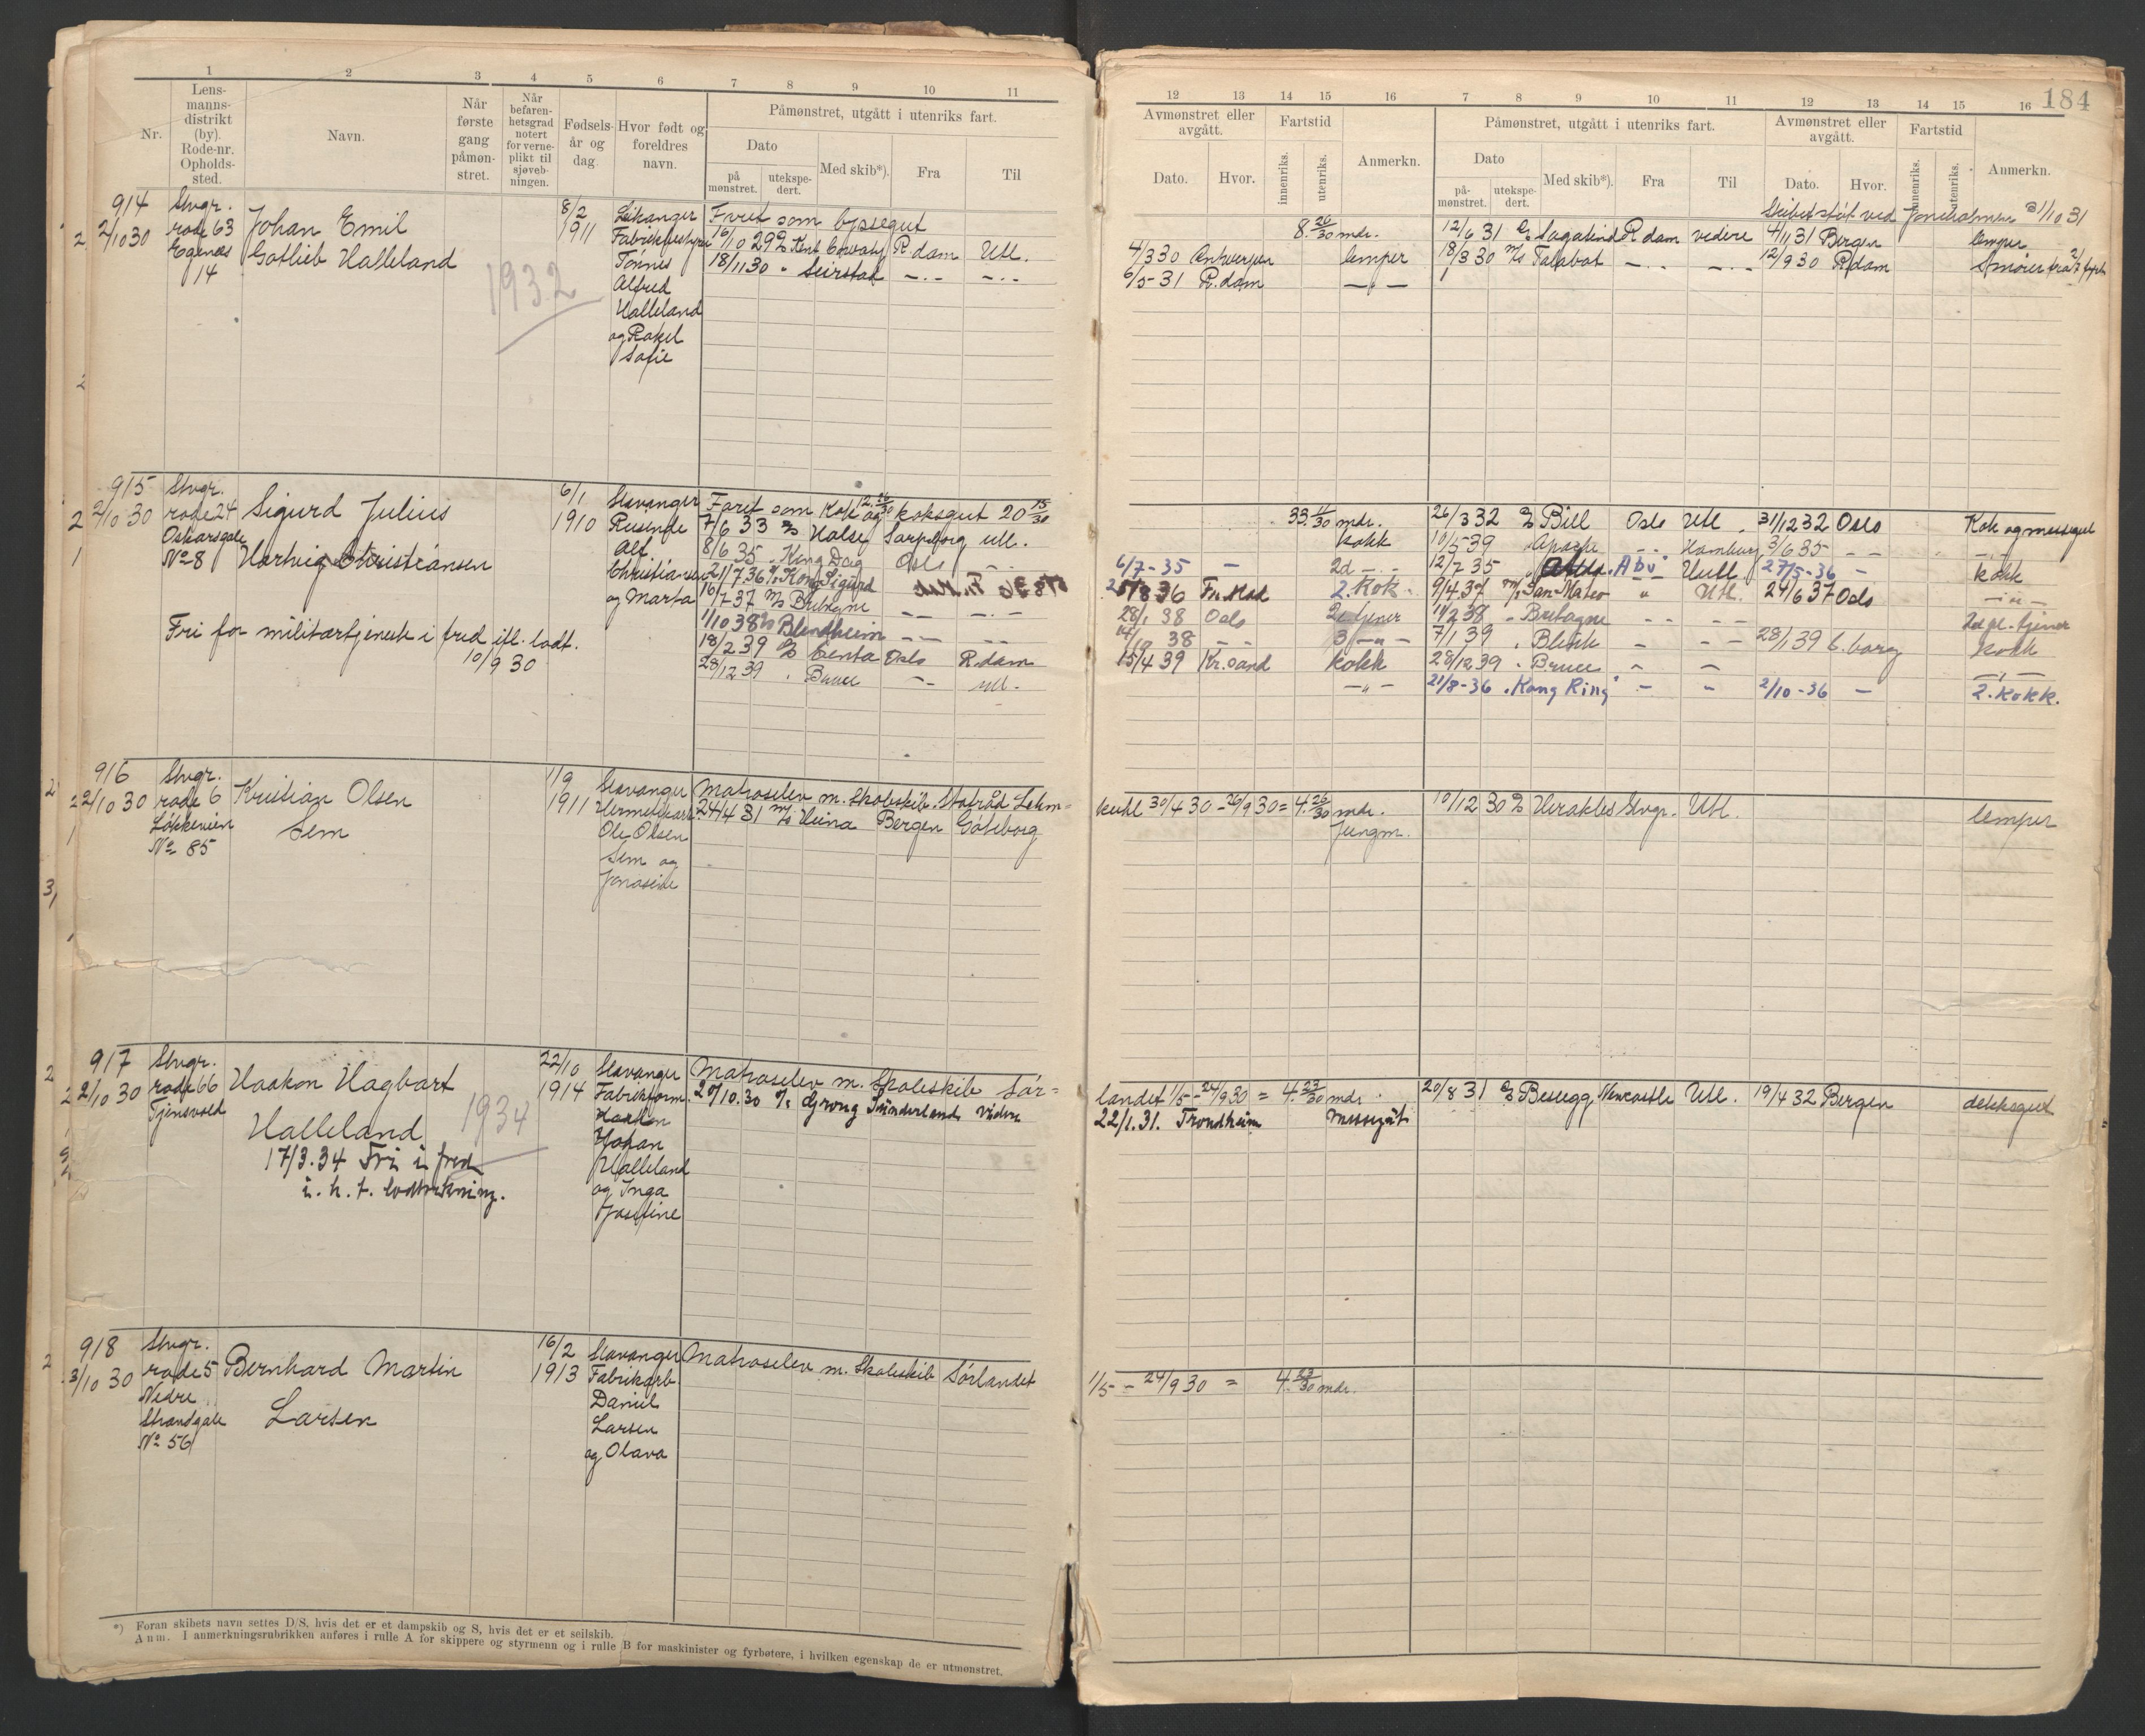 184
1 2 3 4 5 6 7 8 9 10 11
Nr.
Lens-
manns-
distrikt
(by).
Rode-nr.
Opholds-
sted.
Navn.
Når
første
gang
påmøn-
stret.
Når
befaren-
hetsgrad
notert
for verne-
plikt til
sjøveb-
ningen.
Fødsels-
år og
dag.
Hvor født og
foreldres
navn.
Påmønstret, utgått i utenriks fart.
Dato
på
mønstret.
utekspe-
dert.
Med skib*).
Fra
Til
12 13 14 15 16 7 8 9 10 11 12 13 14 15 16
Avmønstret eller
avgått.
Dato.
Hvor.
Fartstid
innenriks.
utenriks.
Anmerkn.
Påmønstret, utgått i utenriks fart.
Dato
på-
mønstret.
utekspe-
dert.
Med skib*).
Fra
Til
Avmønstret eller
avgått.
Dato.
Hvor.
Fartstid
innenriks.
utenriks.
Anmerkn.
914
2/10 30
Stvgr.
rode 63
Egenæs
14
Johan Emil
Gotlieb Halleland
1932
8/2
1911
Leikanger
Fabrikbestyrer
Tønnes
Alfred
Halleland
og Rakel
Sofie
Faret som byssegut
16/10 29 R.dam Utl.
18/11 30 " Seirstad — " — — " —
8 26/30 mdr.
4/3 30 Antwerpen lemper
6/5-31 R.dam — " —
Skibet støt ved Joneholmen 31/10 31
12/6 31 Sagatind R dam videre 4/11 31 Bergen lemper
18/3 30 M/S Talabot — " — — " — 12/9 30 R.dam Smører fra 2/7 fyrb
915
2/10 30
Stvgr.
rode 24
Oskarsgate
No 8
Sigurd Julius
Hartvig Christiansen
Fri for militærtjeneste i fred ifl. lodt.
10/9 30
6/1
1910
Stavanger
Alf
Christiansen
og Marta
Faret som Kok 12 26/30 og koksgut 20 15/30
7/6 33 Halse Sarpsborg utl.
8/6 35 " King Dag Oslo — " —
21/7.36 Kong Sigurd
16/7 37 M/S Bretagne — " — — " —
1/10 38 Blendheim — " — — " —
18/2 39 Centa Oslo R.dam
28/12 39 " Bruce — " — utl.
33 11/30 mdr.
kokk
6/7-35 — 2d — " —
8 36 Fr.stad 2. Kok
28/1 38 Oslo 2. tjener
38 — 3 — " —
15/4 39 Kr.sand kokk
— " —
26/3 32 Bill Oslo Utl. 31/12 32 Oslo Kok og messegut
10/5 39 " Apache — " — Hamburg 3/6 35 — — — " —
12/7 35 Abu — " — Uutl. 27/5-36 — kokk
9/4.37 M/S San Mateo " Utl. 24/6 37 Oslo — " —
11/2 38 " Bretagne — " — — — 2d pl. tjener
7/1 39 " Blink — — 28/1 39 kokk
28/12 39 " Bruce — — — " —
21/8-36 " Kong Ring — — 2/10-36 — 2. Kokk.
916
2/10 30
Stvgr.
rode 6
Løkkeveien
No 85
Kristian Olsen
Sem
1/9
1911
Stavanger
Hermetikarb.
Ole Olsen
Sem og
Jonasine
Matroselev m. Skoleskib. Statsråd Lehm=
24/4 31 M/S Heina Bergen Gøteborg
kuhl 30/4 30 - 26/9 30 = 4 26/30 mdr.
Jungm.
10/12 30 Herakles Stvgr. Utl. lemper
917
2/10 30
Stvgr.
rode 66
Tjensvold
Haakon Hagbart
Halleland
1934
17/3.34 Fri i fred
i. h. t. lodtrekning.
22/10
1914
Stavanger
Fabrikform.
Haakon
Johan
Halleland
og Inga
Jossfine
Matroselev m. Skoleskib Sør=
20/10.30 Grong Sunderland Videre
landet 1/5 - 24/9 30 = 4 23/30 mdr.
22/1.31. Trondheim Messegút
20/8 31 Besegg Newcastle Utl. 19/4 32 Bergen deksgut
918
3/10 30
Stvgr.
rode 5
Nedre
Strandgate
No 56
Bernhard Martin
Larsen
16/2
1913
Stavanger
Fabrikarb
Daniel
Larsen
og Olava
Matroselev m. Skoleskib Sørlandet
1/5 - 24/9 30 = 4 23/30 mdr.
*) Foran skibets navn settes D/S, hvis det er et dampskib og S, hvis det er et seilskib.
Anm. I anmerkningsrubrikken anføres i rulle A for skippere og styrmenn og i rulle B for maskinister og fyrbøtere, i hvilken egenskap de er utmønstret.